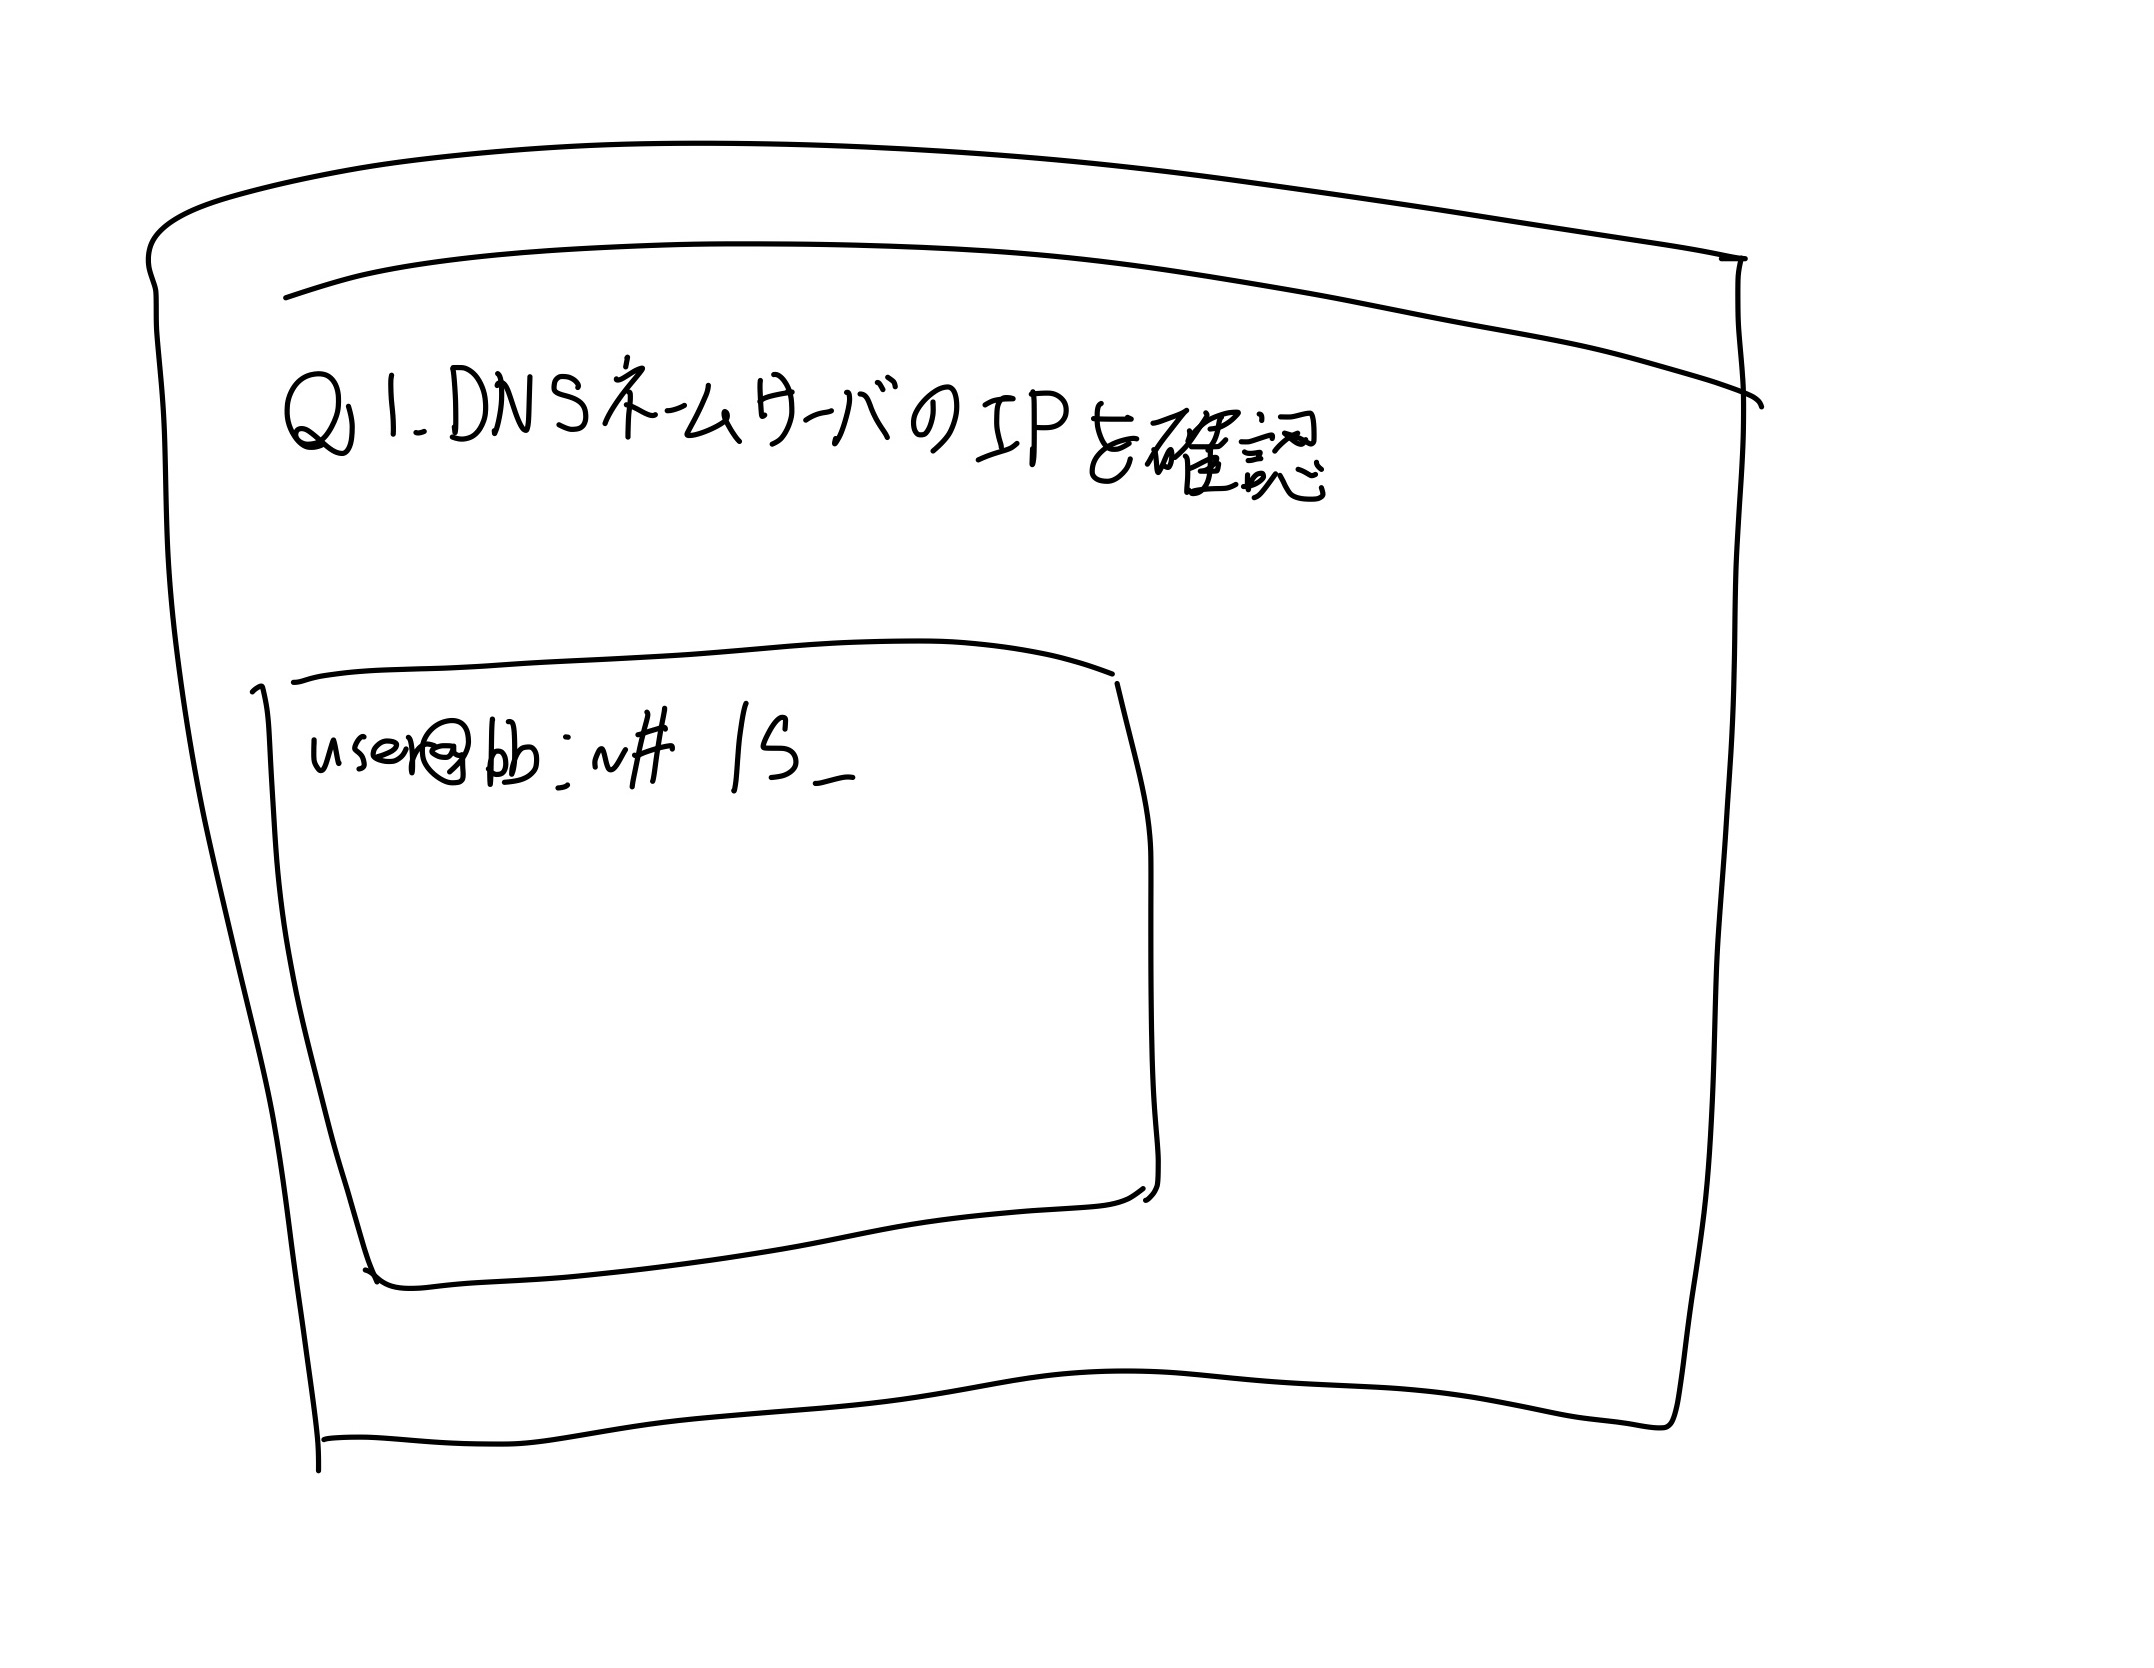 Q1. DNSネームサーバのIPを確認
user@bb:~# ls_